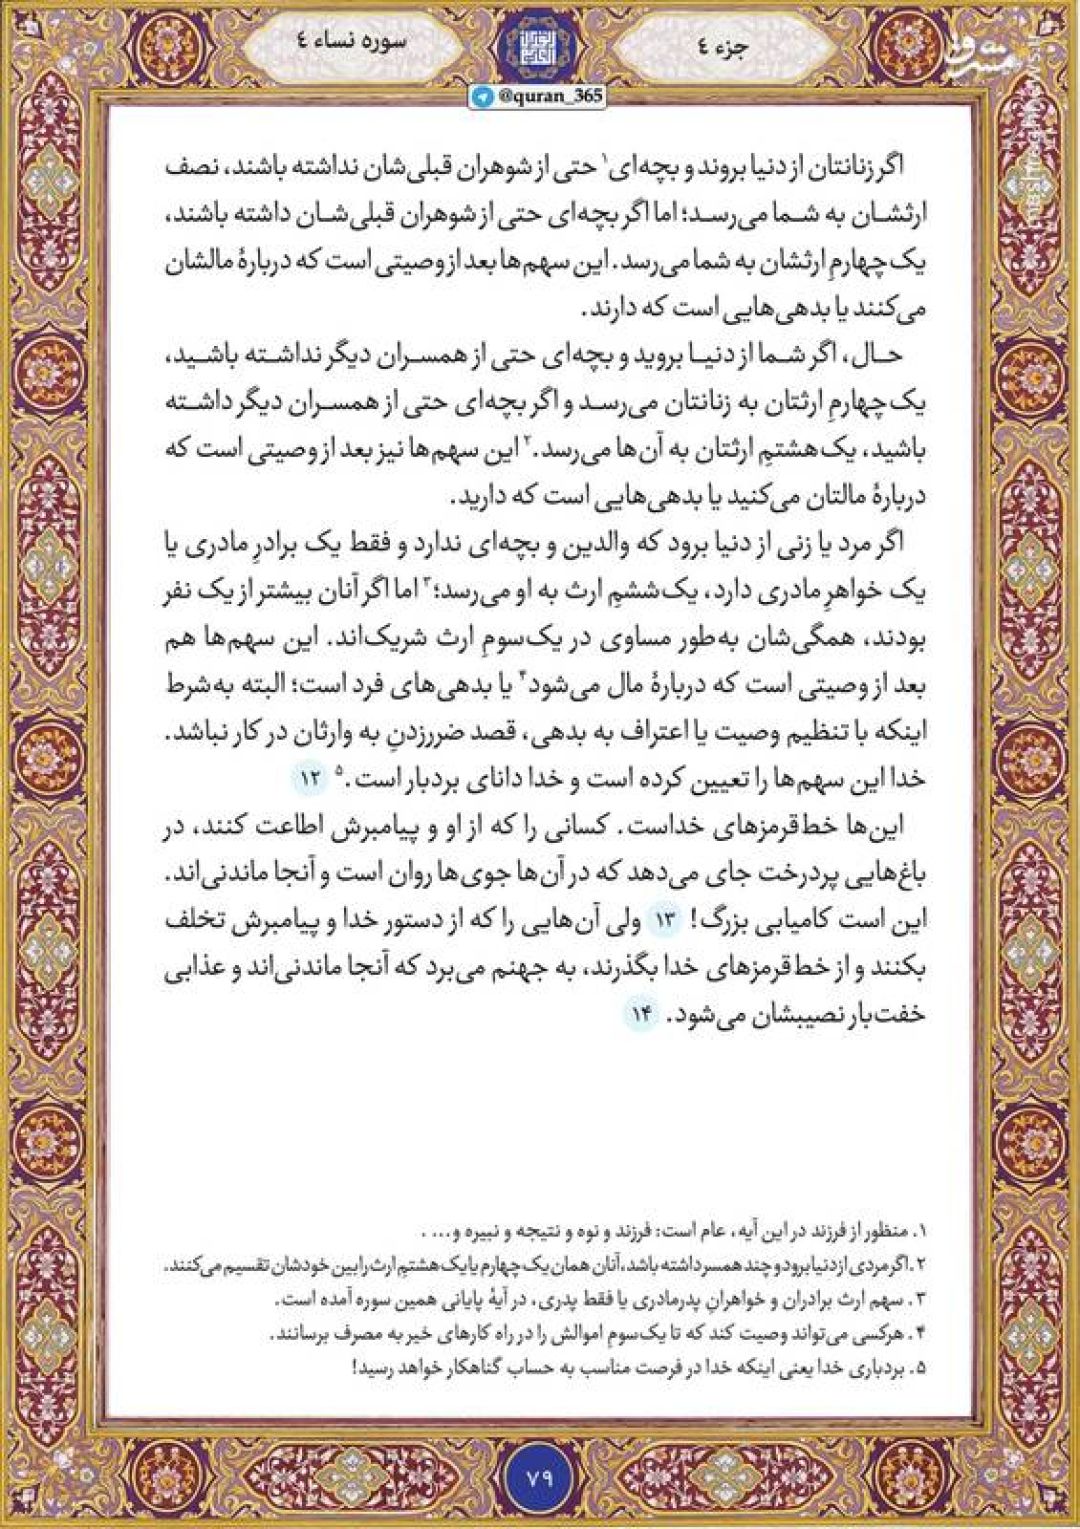 جزء ۴
سوره نساء ۴
@quran_365
مشرق
اگر زنانتان از دنیا بروند و بچه‌ای۱ حتی از شوهران قبلی‌شان نداشته باشند، نصف
ارثشان به شما می‌رسد؛ اما اگر بچه‌ای حتی از شوهران قبلی‌شان داشته باشند،
یک‌چهارمِ ارثشان به شما می‌رسد. این سهم‌ها بعد از وصیتی است که دربارهٔ مالشان
می‌کنند یا بدهی‌هایی است که دارند.
حال، اگر شما از دنیا بروید و بچه‌ای حتی از همسران دیگر نداشته باشید،
یک‌چهارمِ ارثتان به زنانتان می‌رسد و اگر بچه‌ای حتی از همسران دیگر داشته
باشید، یک‌هشتمِ ارثتان به آن‌ها می‌رسد.۲ این سهم‌ها نیز بعد از وصیتی است که
دربارهٔ مالتان می‌کنید یا بدهی‌هایی است که دارید.
اگر مرد یا زنی از دنیا برود که والدین و بچه‌ای ندارد و فقط یک برادرِ مادری یا
یک خواهرِ مادری دارد، یک‌ششمِ ارث به او می‌رسد؛۳ اما اگر آنان بیشتر از یک نفر
بودند، همگی‌شان به‌طور مساوی در یک‌سومِ ارث شریک‌اند. این سهم‌ها هم
بعد از وصیتی است که دربارهٔ مال می‌شود۴ یا بدهی‌های فرد است؛ البته به‌شرط
اینکه با تنظیم وصیت یا اعتراف به بدهی، قصد ضررزدنِ به وارثان در کار نباشد.
خدا این سهم‌ها را تعیین کرده است و خدا دانای بردبار است.۵ ۱۲
این‌ها خط‌قرمزهای خداست. کسانی را که از او و پیامبرش اطاعت کنند، در
باغ‌هایی پردرخت جای می‌دهد که در آن‌ها جوی‌ها روان است و آنجا ماندنی‌اند.
این است کامیابی بزرگ! ۱۳ ولی آن‌هایی را که از دستور خدا و پیامبرش تخلف
بکنند و از خط‌قرمزهای خدا بگذرند، به جهنم می‌برد که آنجا ماندنی‌اند و عذابی
خفت‌بار نصیبشان می‌شود. ۱۴
۱. منظور از فرزند در این آیه، عام است: فرزند و نوه و نتیجه و نبیره و... .
۲. اگر مردی از دنیا برود و چند همسر داشته باشد، آنان همان یک‌چهارم یا یک‌هشتمِ ارث را بین خودشان تقسیم می‌کنند.
۳. سهم ارث برادران و خواهرانِ پدرمادری یا فقط پدری، در آیهٔ پایانی همین سوره آمده است.
۴. هرکسی می‌تواند وصیت کند که تا یک‌سومِ اموالش را در راه کارهای خیر به مصرف برسانند.
۵. بردباری خدا یعنی اینکه خدا در فرصت مناسب به حساب گناهکار خواهد رسید!
۷۹